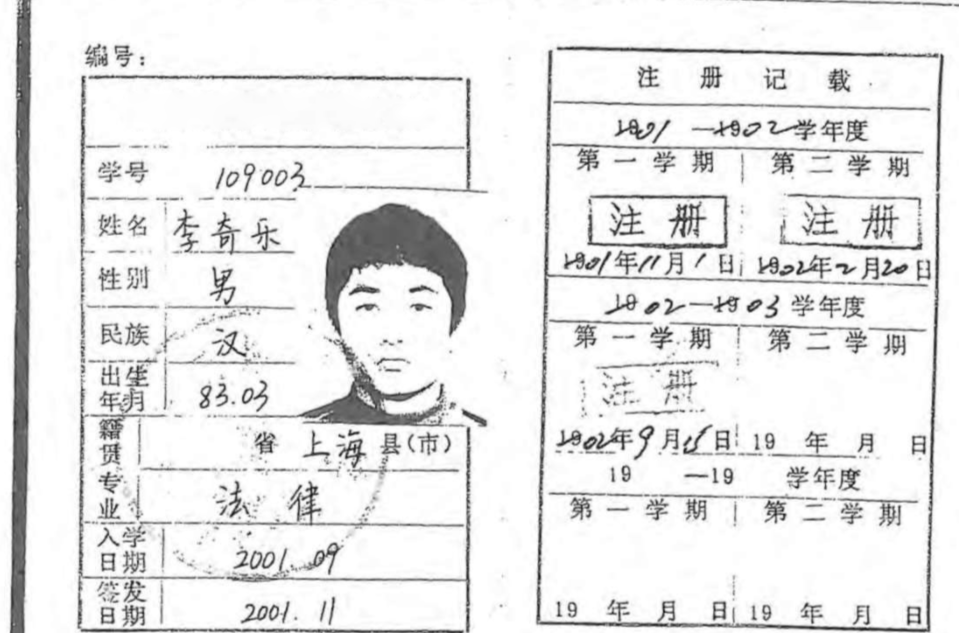 编号：
学号 109003
姓名 李奇乐
性别 男
民族 汉
出生年月 83.03
籍贯 省 上海 县(市)
专业 法律
入学日期 2001.09
签发日期 2001.11
注册记载
1901 —1902学年度
第一学期 第二学期
注册 注册
1901年11月1日 1902年2月20日
1902—1903学年度
第一学期 第二学期
注册
1902年9月15日 19 年 月 日
19 —19 学年度
第一学期 第二学期
19 年 月 日 19 年 月 日